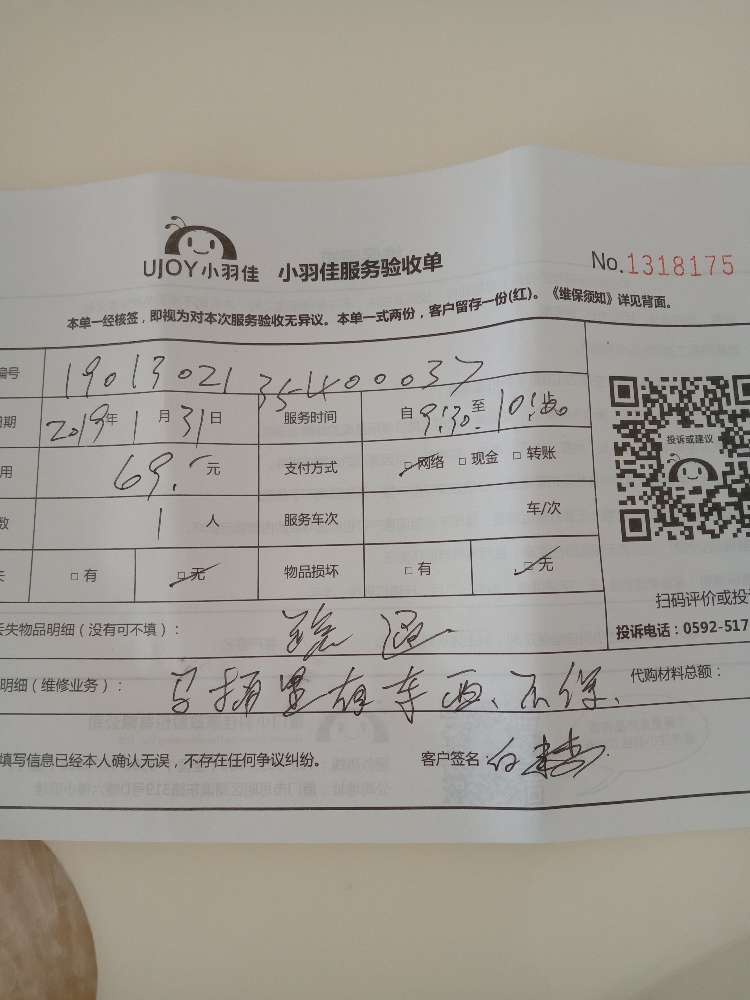 UJOY小羽佳 小羽佳服务验收单 No.1318175
本单一经核签，即视为对本次服务验收无异议。本单一式两份，客户留存一份(红)。《维保须知》详见背面。
编号 19013021 35400037
日期 2019年 1月 31日 服务时间 自 9:30 至 10:
用 69. 元 支付方式 □网络 □现金 □转账
数 1 人 服务车次 车/次
□有 □无 物品损坏 □有 □无
投诉或建议
扫码评价或投
丢失物品明细（没有可不填）： 疏通
投诉电话：0592-517
明细（维修业务）： 马桶里有东西、不保、 代购材料总额：
填写信息已经本人确认无误，不存在任何争议纠纷。 客户签名：